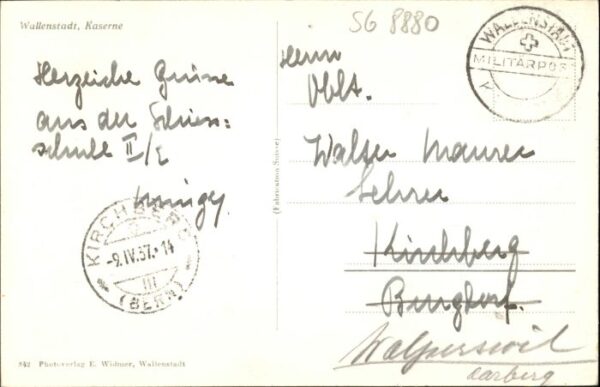 Wallenstadt, Kaserne
SG 8880
WALLENSTADT
MILITÄRPOST
Herzliche Grüsse
aus der Schiess=
schule II/2
Herrn
Oblt.
Walter Maurer
Lehrer
Kirchberg
Burgdorf.
Walperswil
Aarberg
(Fabrication Suisse)
KIRCHBERG
-9.IV.37.-14
III
(BERN)
342 Photoverlag E. Widmer, Wallenstadt